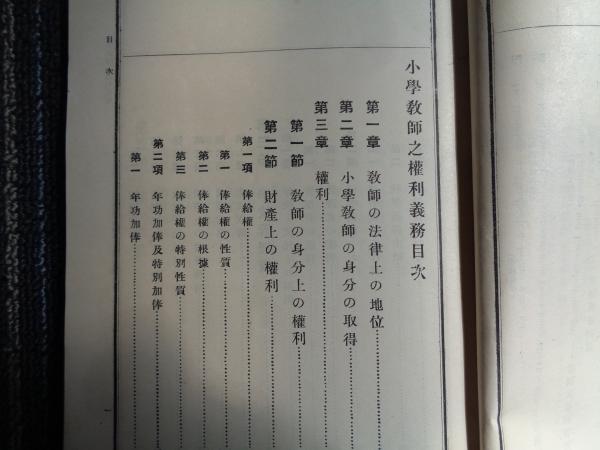 小學敎師之權利義務目次
第一章　敎師の法律上の地位
第二章　小學敎師の身分の取得
第三章　權利
第一節　敎師の身分上の權利
第二節　財產上の權利
第一項　俸給權
第一　俸給權の性質
第二　俸給權の根據
第三　俸給權の特別性質
第二項　年功加俸及特別加俸
第一　年功加俸
目次
一